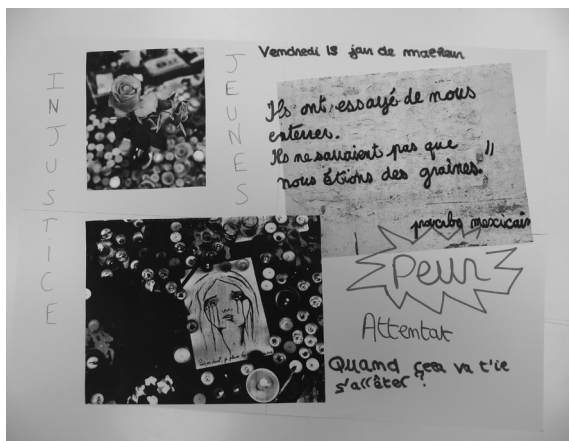 INJUSTICE
JEUNES
Vendredi 13 jour de malheur
Ils ont essayé de nous
enterrer.
Ils ne savaient pas que
nous étions des graines."
proverbe mexicain
Peur
Attentat
Quand cela va t'ie
s'arrêter ?